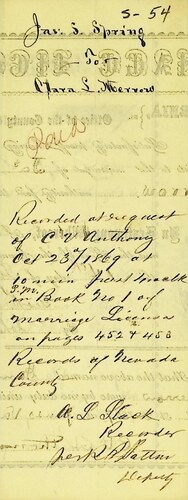 S-54
Jas. S. Spring
To
Clara L. Merrow
Recorded at request
of C V Anthony
Oct 23rd 1869 at
10 min past 9 oclk
in Book No 1 of
Marriage License
on pages 452 & 453
Records of Nevada
County
Recorder
Deputy